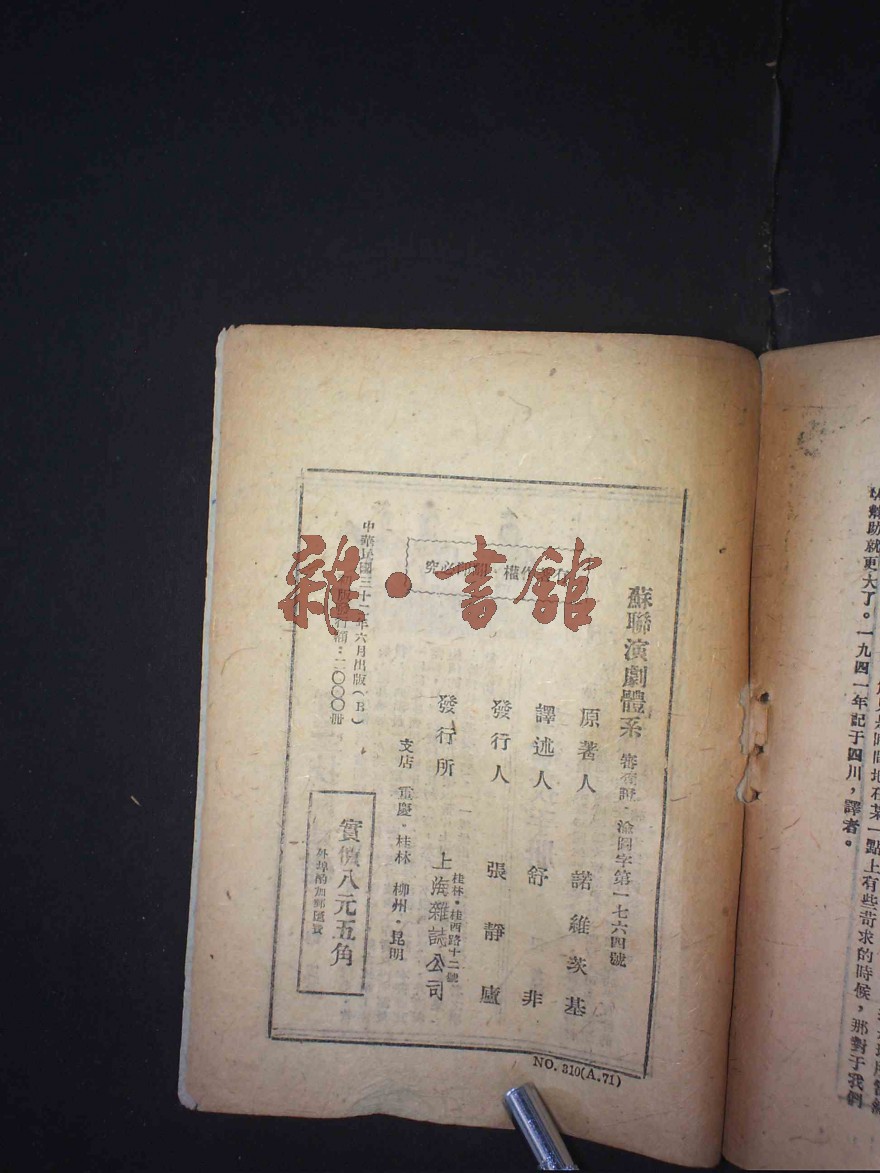 幫助就更大了。一九四一年記于四川，譯者。
點上有些苛求的時候，那對于我們
蘇聯演劇體系
審查證·渝圖字第一七六四號
原著人 諾維茨基
譯述人 舒非
發行人 張靜廬
發行所 上海雜誌公司
桂林·桂西路十二號
支店 重慶·桂林 柳州·昆明
究
中華民國三十二年六月出版(B)
實價八元五角
外埠酌加郵匯費
NO. 310(A.71)
雜·書館